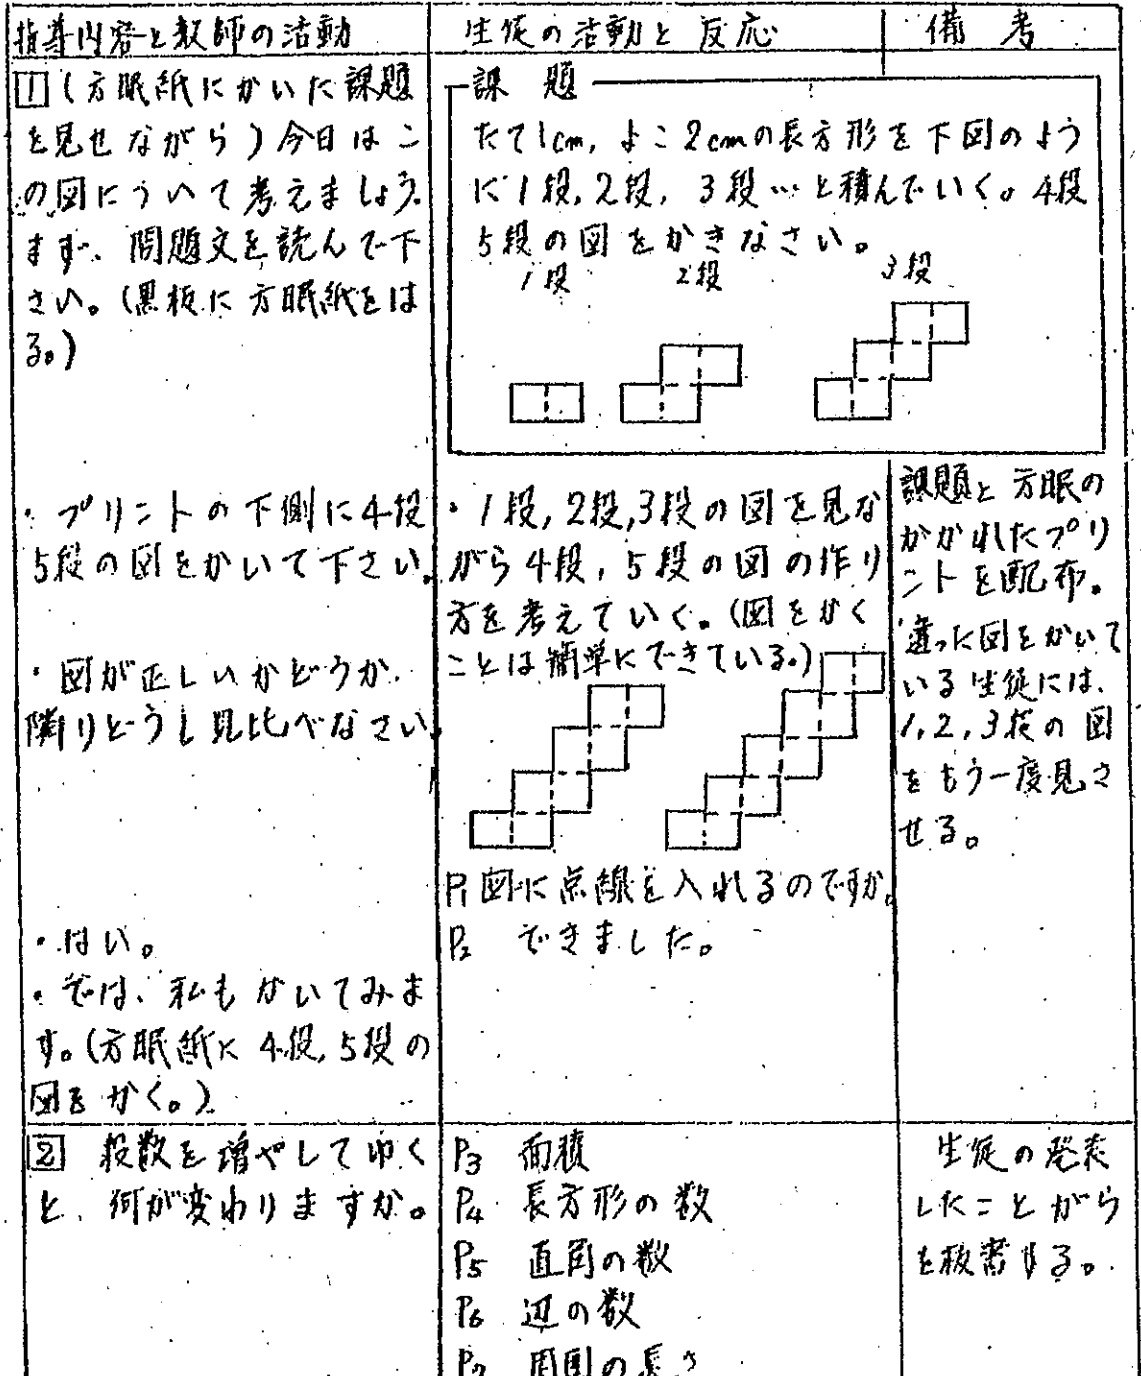 指導内容と教師の活動
生徒の活動と反応
備考
1 (方眼紙にかいた課題
を見せながら)今日はこ
の図について考えましょう。
まず、問題文を読んで下
さい。(黒板に方眼紙をは
る。)
課題
たて1cm, よこ2cmの長方形を下図のよう
に1段, 2段, 3段…と積んでいく。4段
5段の図をかきなさい。
1段 2段 3段
・プリントの下側に4段
5段の図をかいて下さい。
・図が正しいかどうか、
隣りどうし見比べなさい。
・はい。
・では、私もかいてみま
す。(方眼紙に4段, 5段の
図をかく。)
・1段, 2段, 3段の図を見な
がら4段, 5段の図の作り
方を考えていく。(図をかく
ことは簡単にできている。)
P1 図に点線を入れるのですか。
P2 できました。
課題と方眼の
かかれたプリ
ントを配布。
違った図をかいて
いる生徒には、
1, 2, 3段の図
をもう一度見さ
せる。
2 段数を増やしてゆく
と、何が変わりますか。
P3 面積
P4 長方形の数
P5 直角の数
P6 辺の数
P7 周囲の長さ
生徒の発表
したことがら
を板書する。